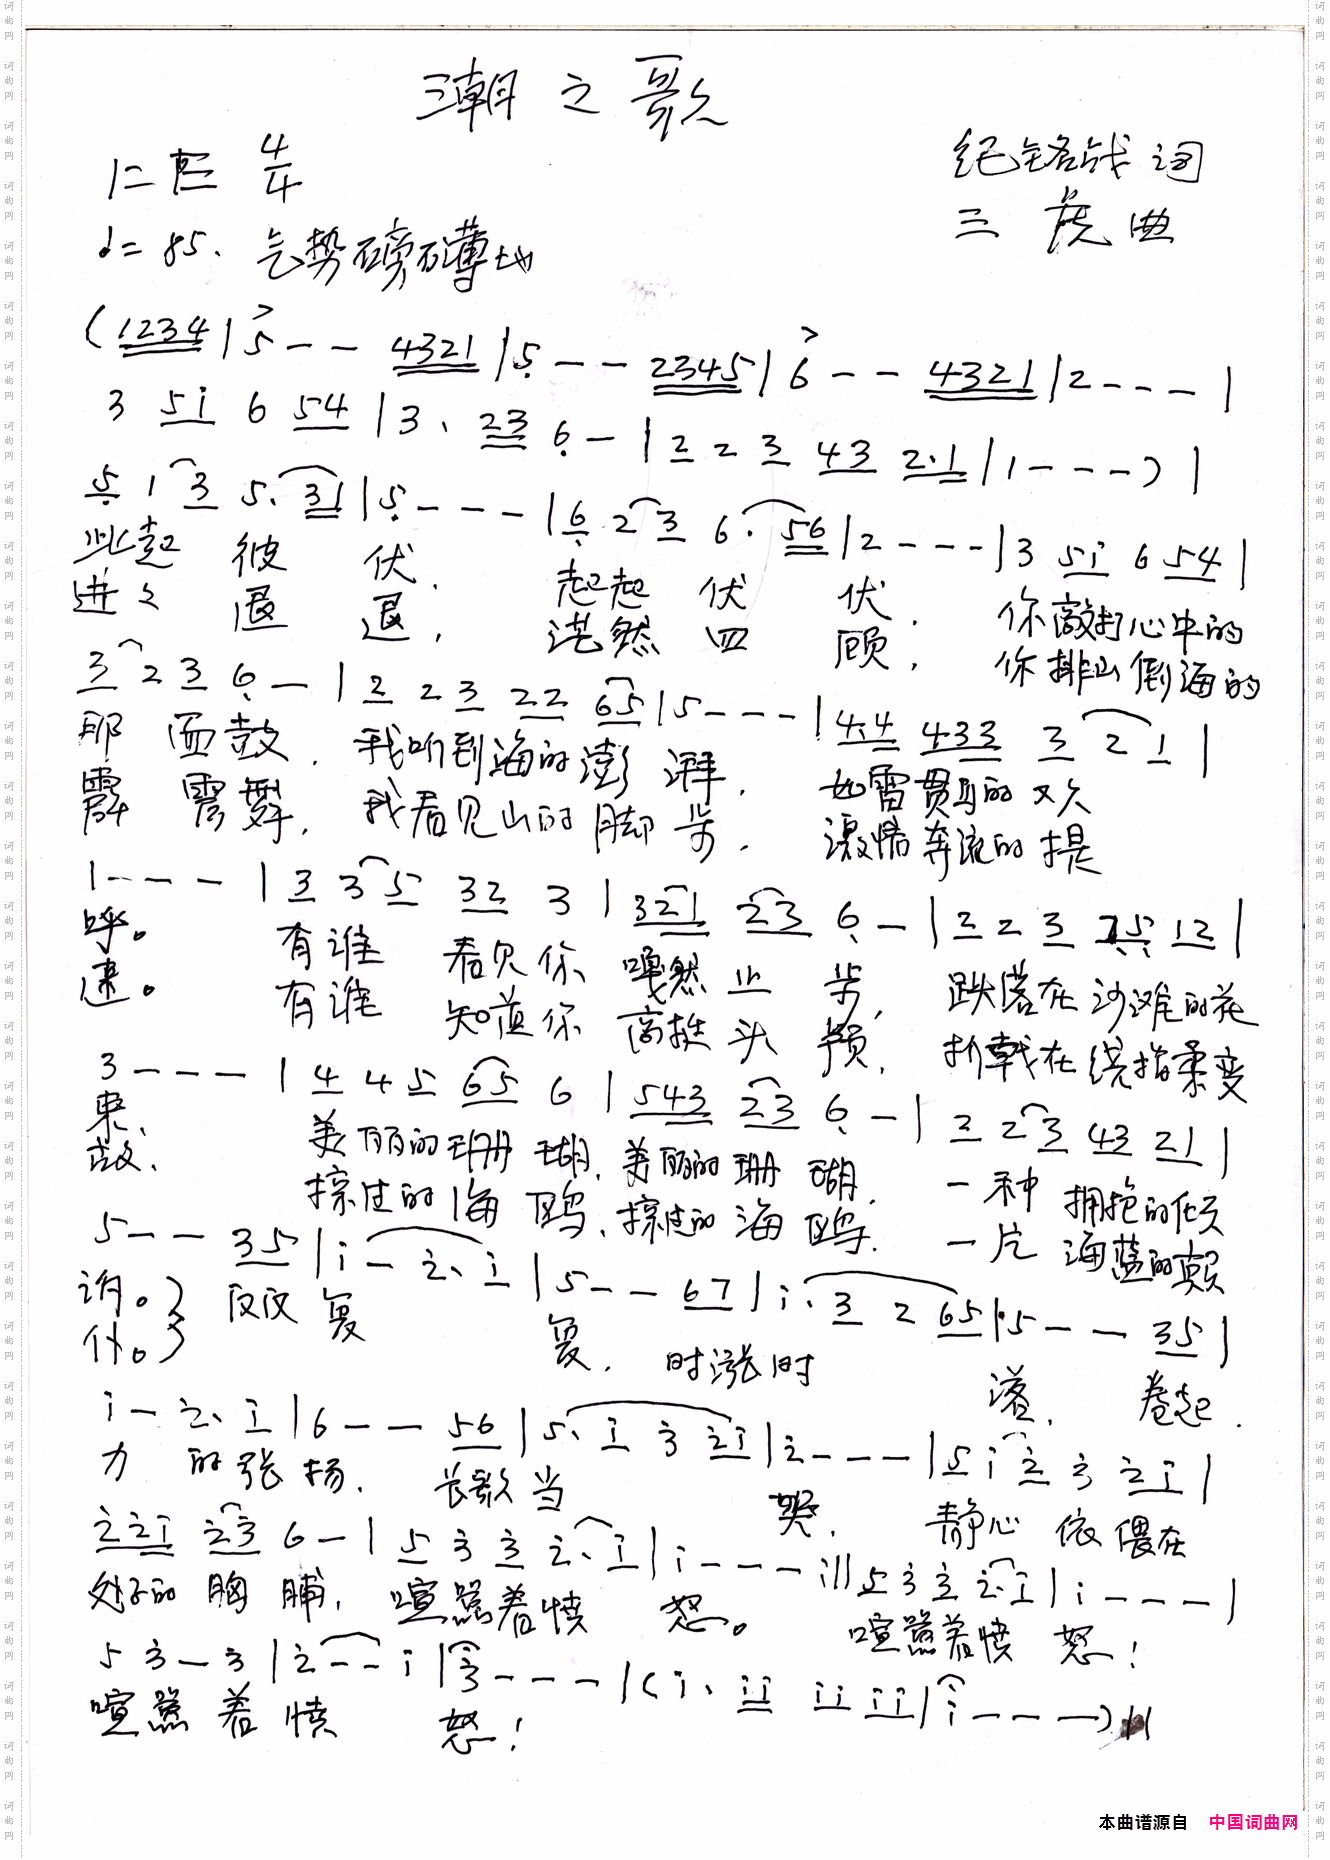 潮之歌
1=E 4/4
纪铭战 词
三虎 曲
♩=85. 气势磅礴地
(1234|5-- 4321|5-- 2345|6-- 4321|2---|
3 5i 6 54|3· 23 6-|2 2 3 43 2·1|1---)|
5 1 3 5· 31|5---|6 2 3 6· 56|2---|3 5i 6 54|
此起 彼 伏, 起起 伏 伏, 你敲打心中的
进々 退 退, 茫然 四 顾, 你排山倒海的
3 2 3 6-|2 2 3 22 65|5---|4·4 433 3 2 1|
那 面鼓, 我听到海的澎 湃, 如雷贯耳的欢
霹雳舞, 我看见山的脚 步, 激情奔流的提
1---|3 3 5 32 3|321 23 6-|2 2 3 75 12|
呼。 有谁 看见你 嘎然 止 步, 跌落在沙滩的花
速。 有谁 知道你 高挺 头 颅, 折戟在绕指柔变
3---|4 4 5 65 6|543 23 6-|2 2 3 43 21|
束, 美丽的珊 瑚, 美丽的珊 瑚, 一种 拥抱的倾
鼓, 掠过的海 鸥, 掠过的海 鸥, 一片 海蓝的
5-- 35|i- 2· i|5-- 67|i· 3 2 65|5-- 35|
诉。} 反反 复 复, 时涨时 落, 卷起
什。}
i- 2· i|6-- 56|5· i 3 2i|2---|5 i 2 3 2i|
力 的张扬, 长歌当 哭, 静心 依偎在
22i 23 6-|5 3 3 2· i|i---:|| 5 3 3 2·i|i---|
处子的胸 脯, 喧嚣着愤 怒。 喧嚣着愤 怒!
5 3-3|2--i|3---|(i· ii ii ii|i---)||
喧嚣 着 愤 怒!
本曲谱源自 中国词曲网
词曲网